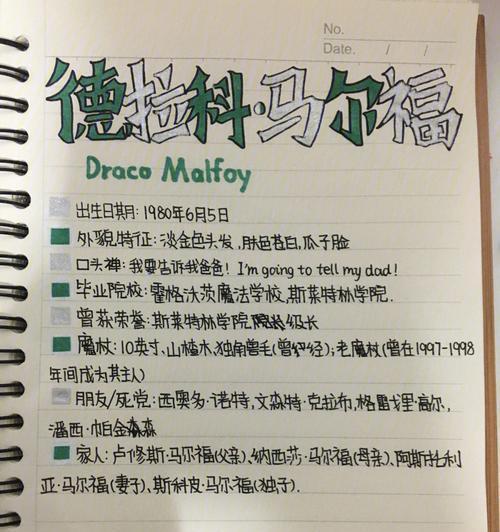 No.
Date. / /
德拉科·马尔福
Draco Malfoy
出生日期: 1980年6月5日
外貌特征: 淡金色头发, 肤色苍白, 瓜子脸
口头禅: 我要告诉我爸爸! I'm going to tell my dad!
毕业院校: 霍格沃茨魔法学校, 斯莱特林学院.
曾获荣誉: 斯莱特林学院 级长
魔杖: 10英寸, 山楂木, 独角兽毛(曾经); 老魔杖(曾在1997-1998
年间成为其主人)
朋友/死党: 西奥多·诺特, 文森特·克拉布, 格雷戈里·高尔,
潘西·帕金森
家人: 卢修斯·马尔福(父亲)、纳西莎·马尔福(母亲)、阿斯托利
亚·马尔福(妻子)、斯科皮·马尔福(独子).